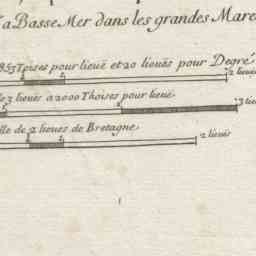 la Basse Mer dans les grandes Mare
853 Toises pour lieuë et 20 lieuës pour Degré
2 lieuës
de 3 lieues a 2000 Thoises pour lieuë
3 lieu
lle de 2 lieues de Bretagne
2 lieuës